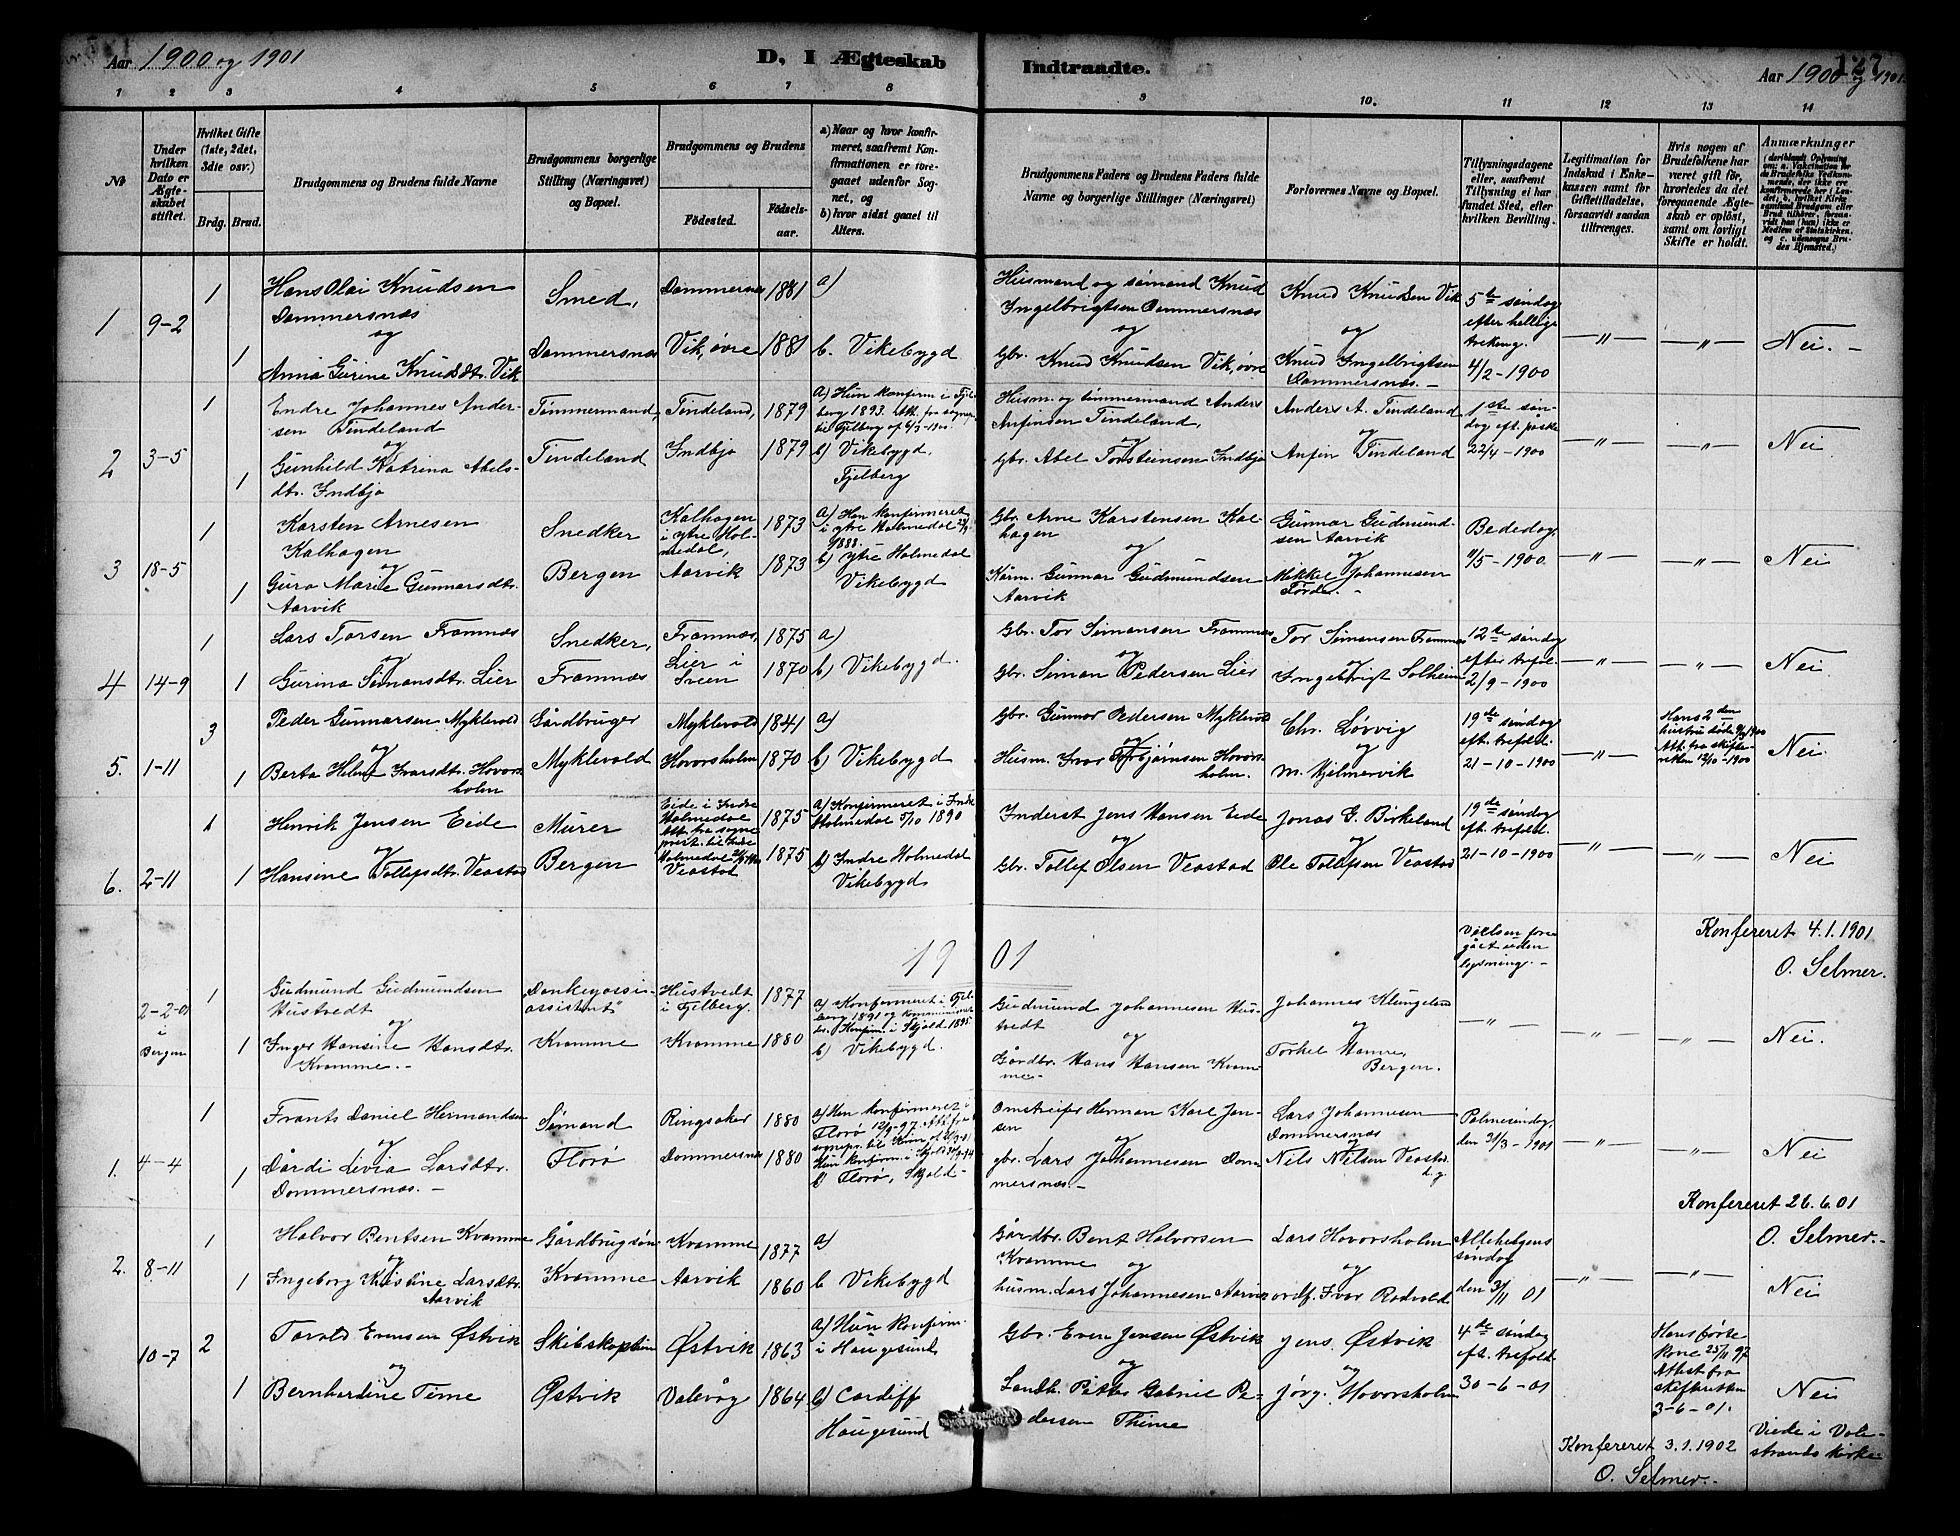 Aar 1900 og 1901
D, I Ægteskab Indtraadte.
Aar 1900 og 1901.
127
1 2 3 4 5 6 7 8 9 10. 11 12 13 14
№
Under hvilken Dato er Ægteskabet stiftet.
Hvilket Gifte (1ste, 2det, 3die osv.)
Brdg. Brud.
Brudgommens og Brudens fulde Navne
Brudgommens borgerlige Stilling (Næringsvei) og Bopæl.
Brudgommens og Brudens
Fødested.
Fødselsaar.
a) Naar og hvor konfirmeret, saafremt Konfirmationen er foregaaet udenfor Sognet, og
b) hvor sidst gaaet til Alters.
Brudgommens Faders og Brudens Faders fulde Navne og borgerlige Stillinger (Næringsvei)
Forlovernes Navne og Bopæl.
Tillysningsdagene eller, saafremt Tillysning ei har fundet Sted, efter hvilken Bevilling.
Legitimation for Indskud i Enkekassen samt for Giftetilladelse, forsaavidt saadan tiltrænges.
Hvis nogen af Brudefolkene har været gift før, hvorledes da det foregaaende Ægteskab er opløst, samt om lovligt Skifte er holdt.
Anmærkninger
1 9-2 1 Hans Olai Knudsen Dommersnæs
og
1 Anna Gurine Knudsdtr. Vik
Smed, Dommersnæs
Dommersnæs 1881 a)
Vik, øvre 1881 b. Vikebygd
Husmand og sømand Knud Ingelbrigtsen Dommersnæs
og
Gbr. Knud Knudsen Vik, øvre
Knud Knudsen Vik
og
Knud Ingelbrigtsen Dommersnæs. -
5te søndag efter hellige trekong. 4/2 - 1900
—"— —"— Nei. -
2 3-5 1 Endre Johannes Andersen Tindeland
og
1 Gunhild Katrina Abelsdtr. Indbjo
Tømmermand, Tindeland
Tindeland, 1879
Indbjo 1879
a) Hun konfirm. i Fjelberg 1893. Att. fra sognepr. til Fjelberg af 6/3-1900.
b) Vikebygd, Fjelberg
Husm. og tømmermand Anders Anfinsen Tindeland,
og
Gbr. Abel Torsteinsen Indbjo
Anders A. Tindeland
og
Anfin Tindeland
1ste søndag eft. påske 22/4 - 1900
—"— —"— Nei
3 18-5 1 Karsten Arnesen Kalhagen
og
1 Guro Marie Gunnarsdtr. Aarvik
Snedker Bergen
Kalhagen i ytre Holmedal, 1873
Aarvik 1873
a) Han konfirmeret i ytre Holmedal 1888.
b) Ytre Holmedal Vikebygd
Gbr. Arne Karstensen Kalhagen
og
Kårm. Gunnar Gudmundsen Aarvik
Gunnar Gudmundsen Aarvik
og
Mikkel Johannesen Førde. -
Bededag, 11/5 - 1900.
—"— —"— Nei
4 14-9 1 Lars Torsen Framnæs
og
1 Gurina Simonsdtr. Lier
Snedker, Framnæs
Framnæs, 1875 a)
Lier i Sveen 1870 b) Vikebygd.
Gbr. Tor Simonsen Framnæs
og
Gbr. Simon Pedersen Lier
Tor Simonsen Framnæs
og
Ingebrigt Solheim
12te søndag efter trefol. 2/9 - 1900
—"— —"— Nei
5. 1-11 3 Peder Gunnarsen Myklevold
og
1 Berta Helene Ivarsdtr. Hovorsholm
Gårdbruger Myklevold
Myklevold 1841 a)
Hovorsholm 1870 b) Vikebygd
Gbr. Gunnar Pedersen Myklevold
og
Husm. Ivar Torbjørnsen Hovorsholm.
Chr. Løvvig
og
M. Hjelmervik
19de søndag eft. trefold. 21-10-1900
—"— Hans 2den hustru døde 1900 Att. fra skifteretten 12/10-1900
Nei
6. 2-11 1 Henrik Jensen Eide
og
1 Hansine Tollefsdtr. Veastad
Murer Bergen
Eide i Indre Holmedal Att. fra sogneprst. til Indre Holmedal 1875
Veastad 1875
a) Konfirmeret i Indre Holmedal 5/10 1890
b) Indre Holmedal Vikebygd
Inderst Jens Hansen Eide
og
Gbr. Tollef Olsen Veastad
Jonas G. Birkeland
og
Ole Tollefsen Veastad
19de søndag eft. trefold. 21-10-1900
—"— —"— Nei
Konfereret 4.1.1901
O. Selmer.
1901
2-2-01 i Bergen 1 Gudmund Gudmundsen Hustvedt
og
1 Inger Hansine Hansdtr. Kvamme. -
Kvamme
Hustvedt i Fjelberg. 1877
Kvamme 1880
a) Konfirmeret i Fjelberg 1891 Konfirm. i Skjold 1895
b) Vikebygd.
Gudmund Johannesen Hustvedt
og
Gårdbr. Hans Hansen Kvamme. -
Johannes Klungeland
og
Torkel Hamre, Bergen.
Vielsen foregået uden lysning. -
—"— —"— —"— Nei.
1. 4-4 1 Frants Daniel Hermandsen
og
1 Dårdi Livia Larsdtr. Dommersnæs. -
Sømand Florø
Ringsaker 1880
Dommersnæs 1880
a) Han konfirmeret i Florø 12/9-97.
Hun konfirm. i Skjold
b) Florø, Skjold -
Omstreifer Herman Karl Jensen
og
gbr. Lars Johannesen Dommersnæs. -
Lars Johannesen Dommersnæs
og
Nils Nilsen Veastad d. y.
Palmesøndag, den 31/3 - 1901
—"— —"— Nei
Konfereret 26.6.01
O. Selmer. -
2. 8-11 1 Halvor Bentsen Kvamme
og
1 Ingeborg Kristine Larsdtr. Aarvik
Gårdbrugsøn Kvamme
Kvamme 1877 a)
Aarvik 1860 b Vikebygd
Gårdbr. Bent Halvorsen Kvamme og
husm. Lars Johannesen Aarvik
Lars Hovorsholm
og
ordf. Ivar Rødvold
Allehelgens søndag den 3/11 01
—"— —"— Nei
10-7 2 Torald Evensen Østvik
og
1 Bernhardine Time
Skibskaptein Østvik
Østvik 1863
Valevåg 1864
a) Hun konfirm. i Haugesund
b) Cardiff Haugesund
Gbr. Even Jensen Østvik
og
Landh. Petter Gabriel Pedersen Thime
Jens Østvik
og
Jørg. Hovorsholm
4de søndag eft. trefold. 30-6-01
Hans første kone 25/11 97 Attest fra skifteretten 3-6-01.
Nei
Viede i Valestrands kirke
Konfereret 3.1.1902
O. Selmer. -